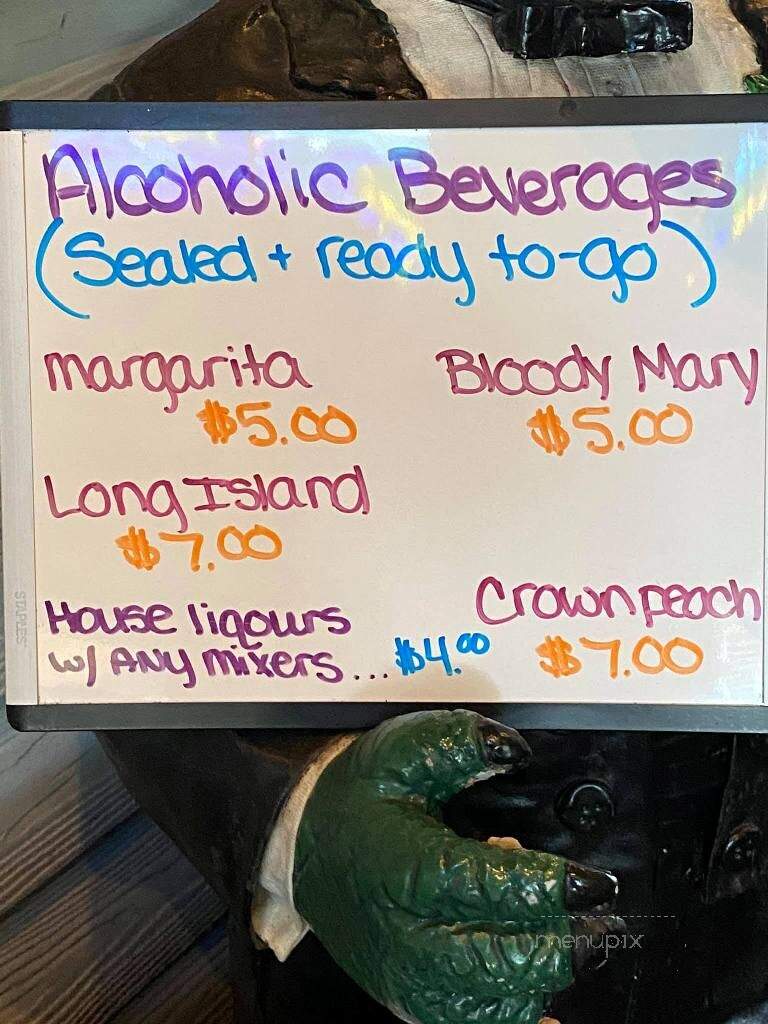 Alcoholic Beverages
(Sealed + ready to-go)
margarita
$5.00
Bloody Mary
$5.00
Long Island
$7.00
House liqours
w/ ANY mixers... $4.00
Crown peach
$7.00
STAPLES
menupix